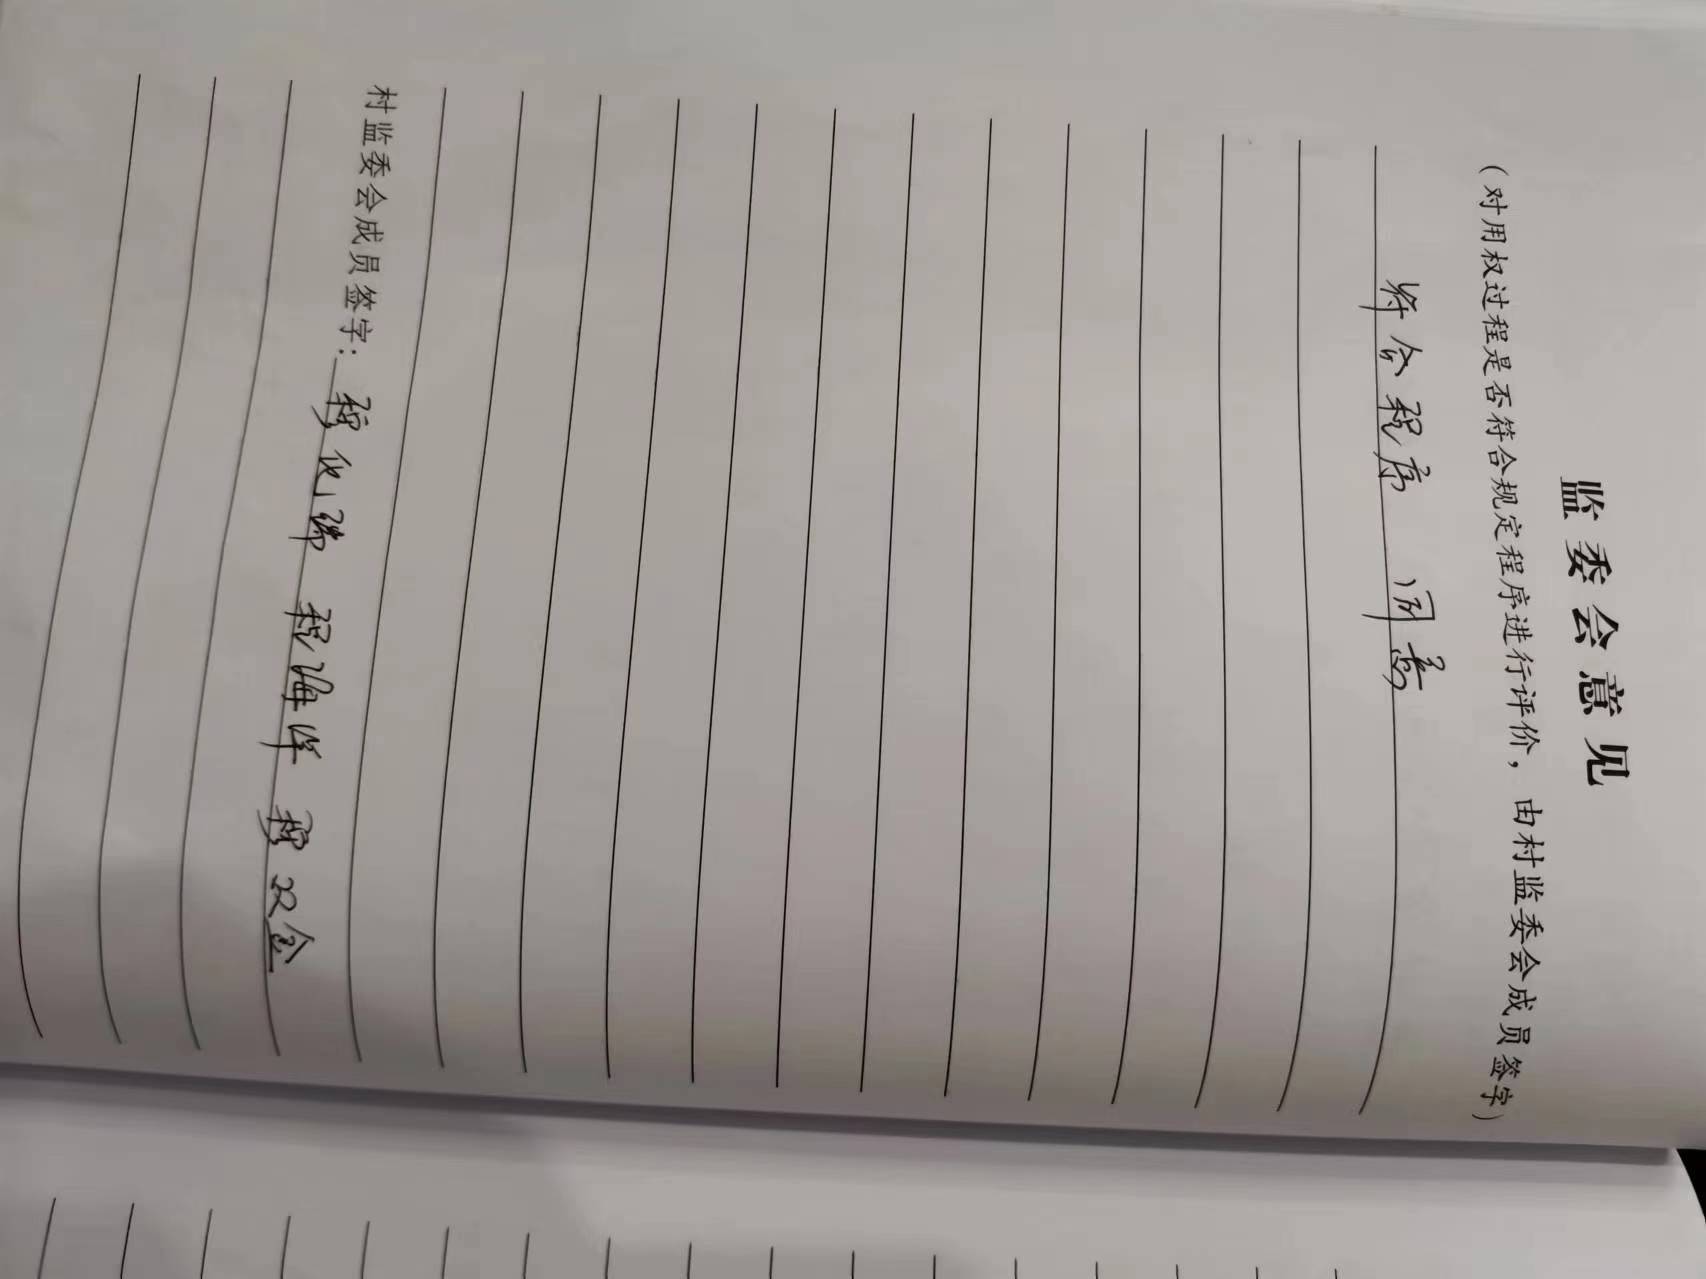 监委会意见
（对用权过程是否符合规定程序进行评价，由村监委会成员签字）
符合程序 同意
村监委会成员签字：程化瑞 程海洋 程双金